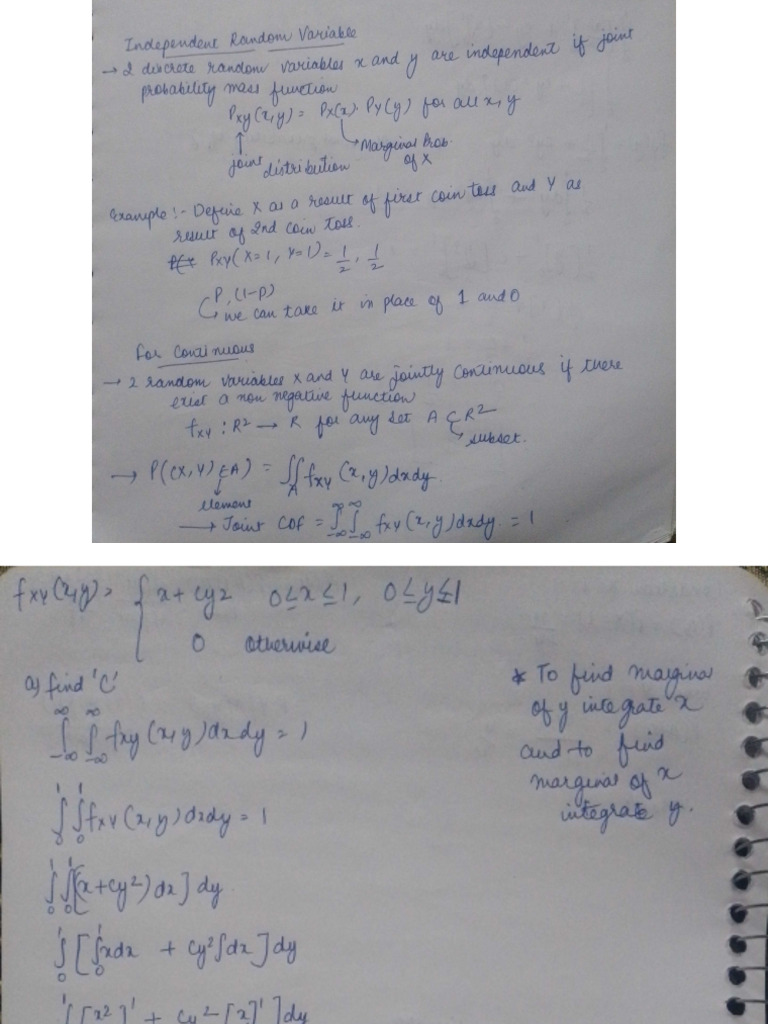 Independent Random Variable
→ 2 discrete random variables x and y are independent if joint
probability mass function
Pxy(x,y) = Px(x) · Py(y) for all x, y
joint distribution
Marginal Prob. of X
Example :- Define X as a result of first coin toss and Y as
result of 2nd coin toss.
Pxy(X=1, Y=1) = 1/2, 1/2
P, (1-p)
we can take it in place of 1 and 0
For Continuous
→ 2 random variables X and Y are jointly continuous if there
exist a non negative function
fxy : R² → R for any set A ⊆ R²
subset.
→ P((X,Y) ∈ A) = ∬_A fxy (x,y) dxdy
element
→ Joint CDF = ∫_{-∞}^{∞} ∫_{-∞}^{∞} fxy(x,y) dxdy = 1
fxy(x,y) = { x + cy2 0≤x≤1, 0≤y≤1
0 otherwise
a) find 'C'
∫_{-∞}^{∞} ∫_{-∞}^{∞} fxy (x,y) dxdy = 1
∫_0^1 ∫_0^1 fxy (x,y) dxdy = 1
∫_0^1 ∫_0^1 [(x+cy²) dx] dy
∫_0^1 [∫_0^1 xdx + cy² ∫dx] dy
∫^1 [[x²]^1 + cy² [x]^1] dy
* To find marginal
of y integrate x
and to find
marginal of x
integrate y.